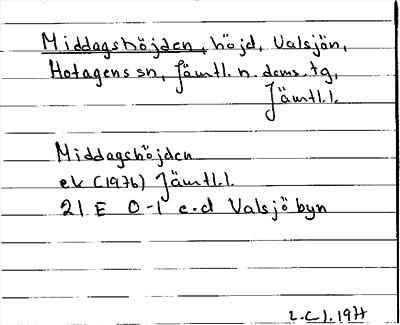 Middagshöjden, höjd, Valsjön,
Hotagens sn, Jämtl. n. doms. tg,
Jämtl.l.
Middagshöjden
ek (1976) Jämtl.l.
21 E 0-1 c-d Valsjöbyn
1977